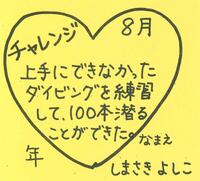 チャレンジ 8月
上手にできなかった
ダイビングを練習
して、100本潜る
ことができた。
なまえ
年 しまさき よしこ